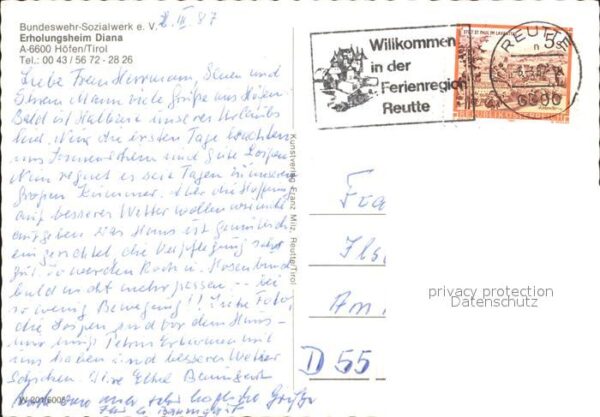 Bundeswehr-Sozialwerk e. V.
Erholungsheim Diana
A-6600 Höfen/Tirol
Tel.: 00 43 / 56 72 - 28 26
III 87
Liebe Frau Herrmann, Ihnen und
Ihrem Mann viele Grüße aus Höfen
Bald ist Halbzeit unseres Urlaubs
Nur die ersten Tage brachten
uns Sonnenschein und gute Loipen
Nun regnet es seit Tagen zu unserem
großen Kummer. Aber die Hoffnung
auf besseres Wetter wollen wir nicht
aufgeben. Das Haus ist gemütlich
eingerichtet, die Verpflegung sehr
gut so werden Rock u. Hosenbund
bald nicht mehr passen -- bei
so wenig Bewegung!! Siehe Foto,
die Loipen sind vor dem Haus-
uns haben und besseres Wetter
schicken. Ihre
auch von mir herzliche Grüße
Ihr
W 201/6005
Kunstverlag Franz Milz, Reutte/Tirol
Willkommen
in der
Ferienregion
Reutte
REUTTE
6600
STIFT ST. PAUL IM LAVANTTAL
5 S
REPUBLIK ÖSTERREICH
Fra
Ilse
Am
D 55
privacy protection
Datenschutz